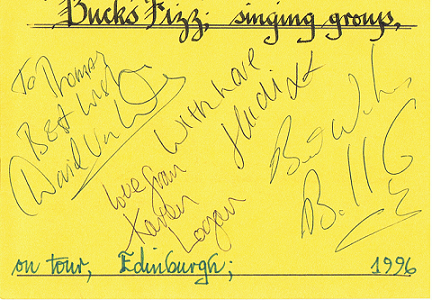 Bucks Fizz, singing group,
To Thomas
Best Wishes
David Van Day
With Love
Heidi xx
Love from
Karen
Logan
Best Wishes
Bill G
on tour, Edinburgh; 1996